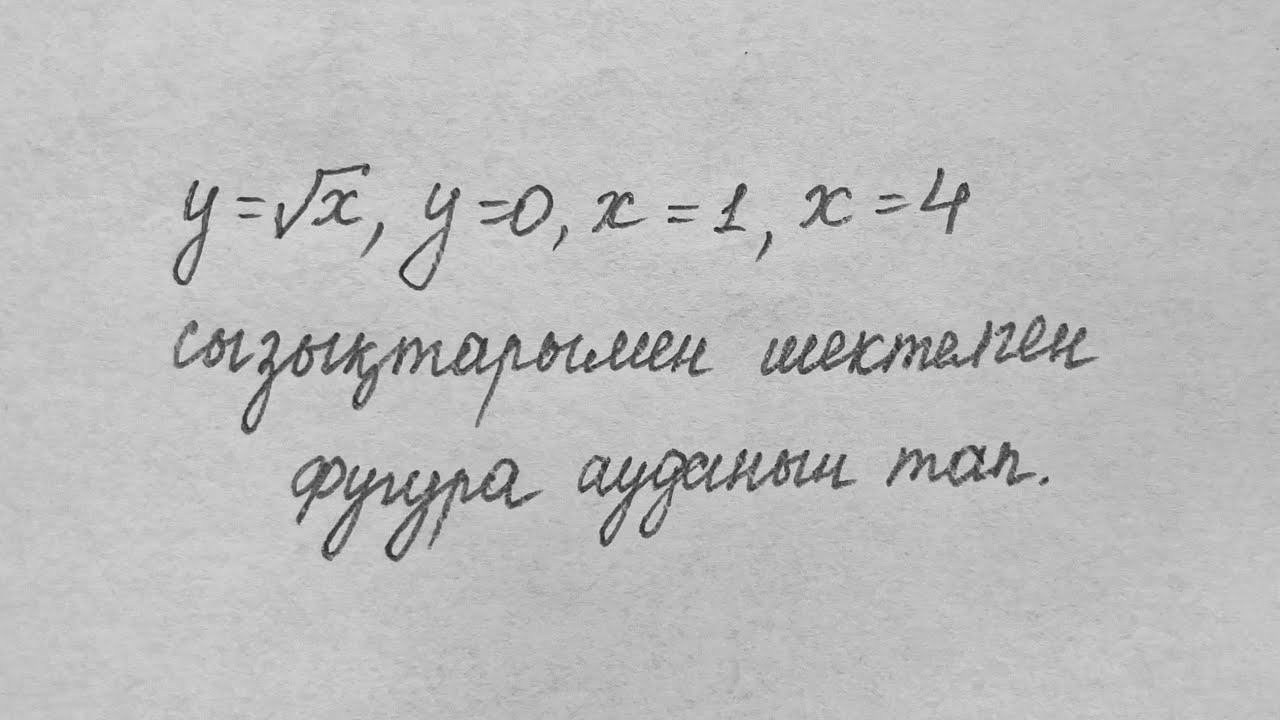 y=√x, y=0, x=1, x=4
сызықтарымен шектелген
фигура ауданын тап.